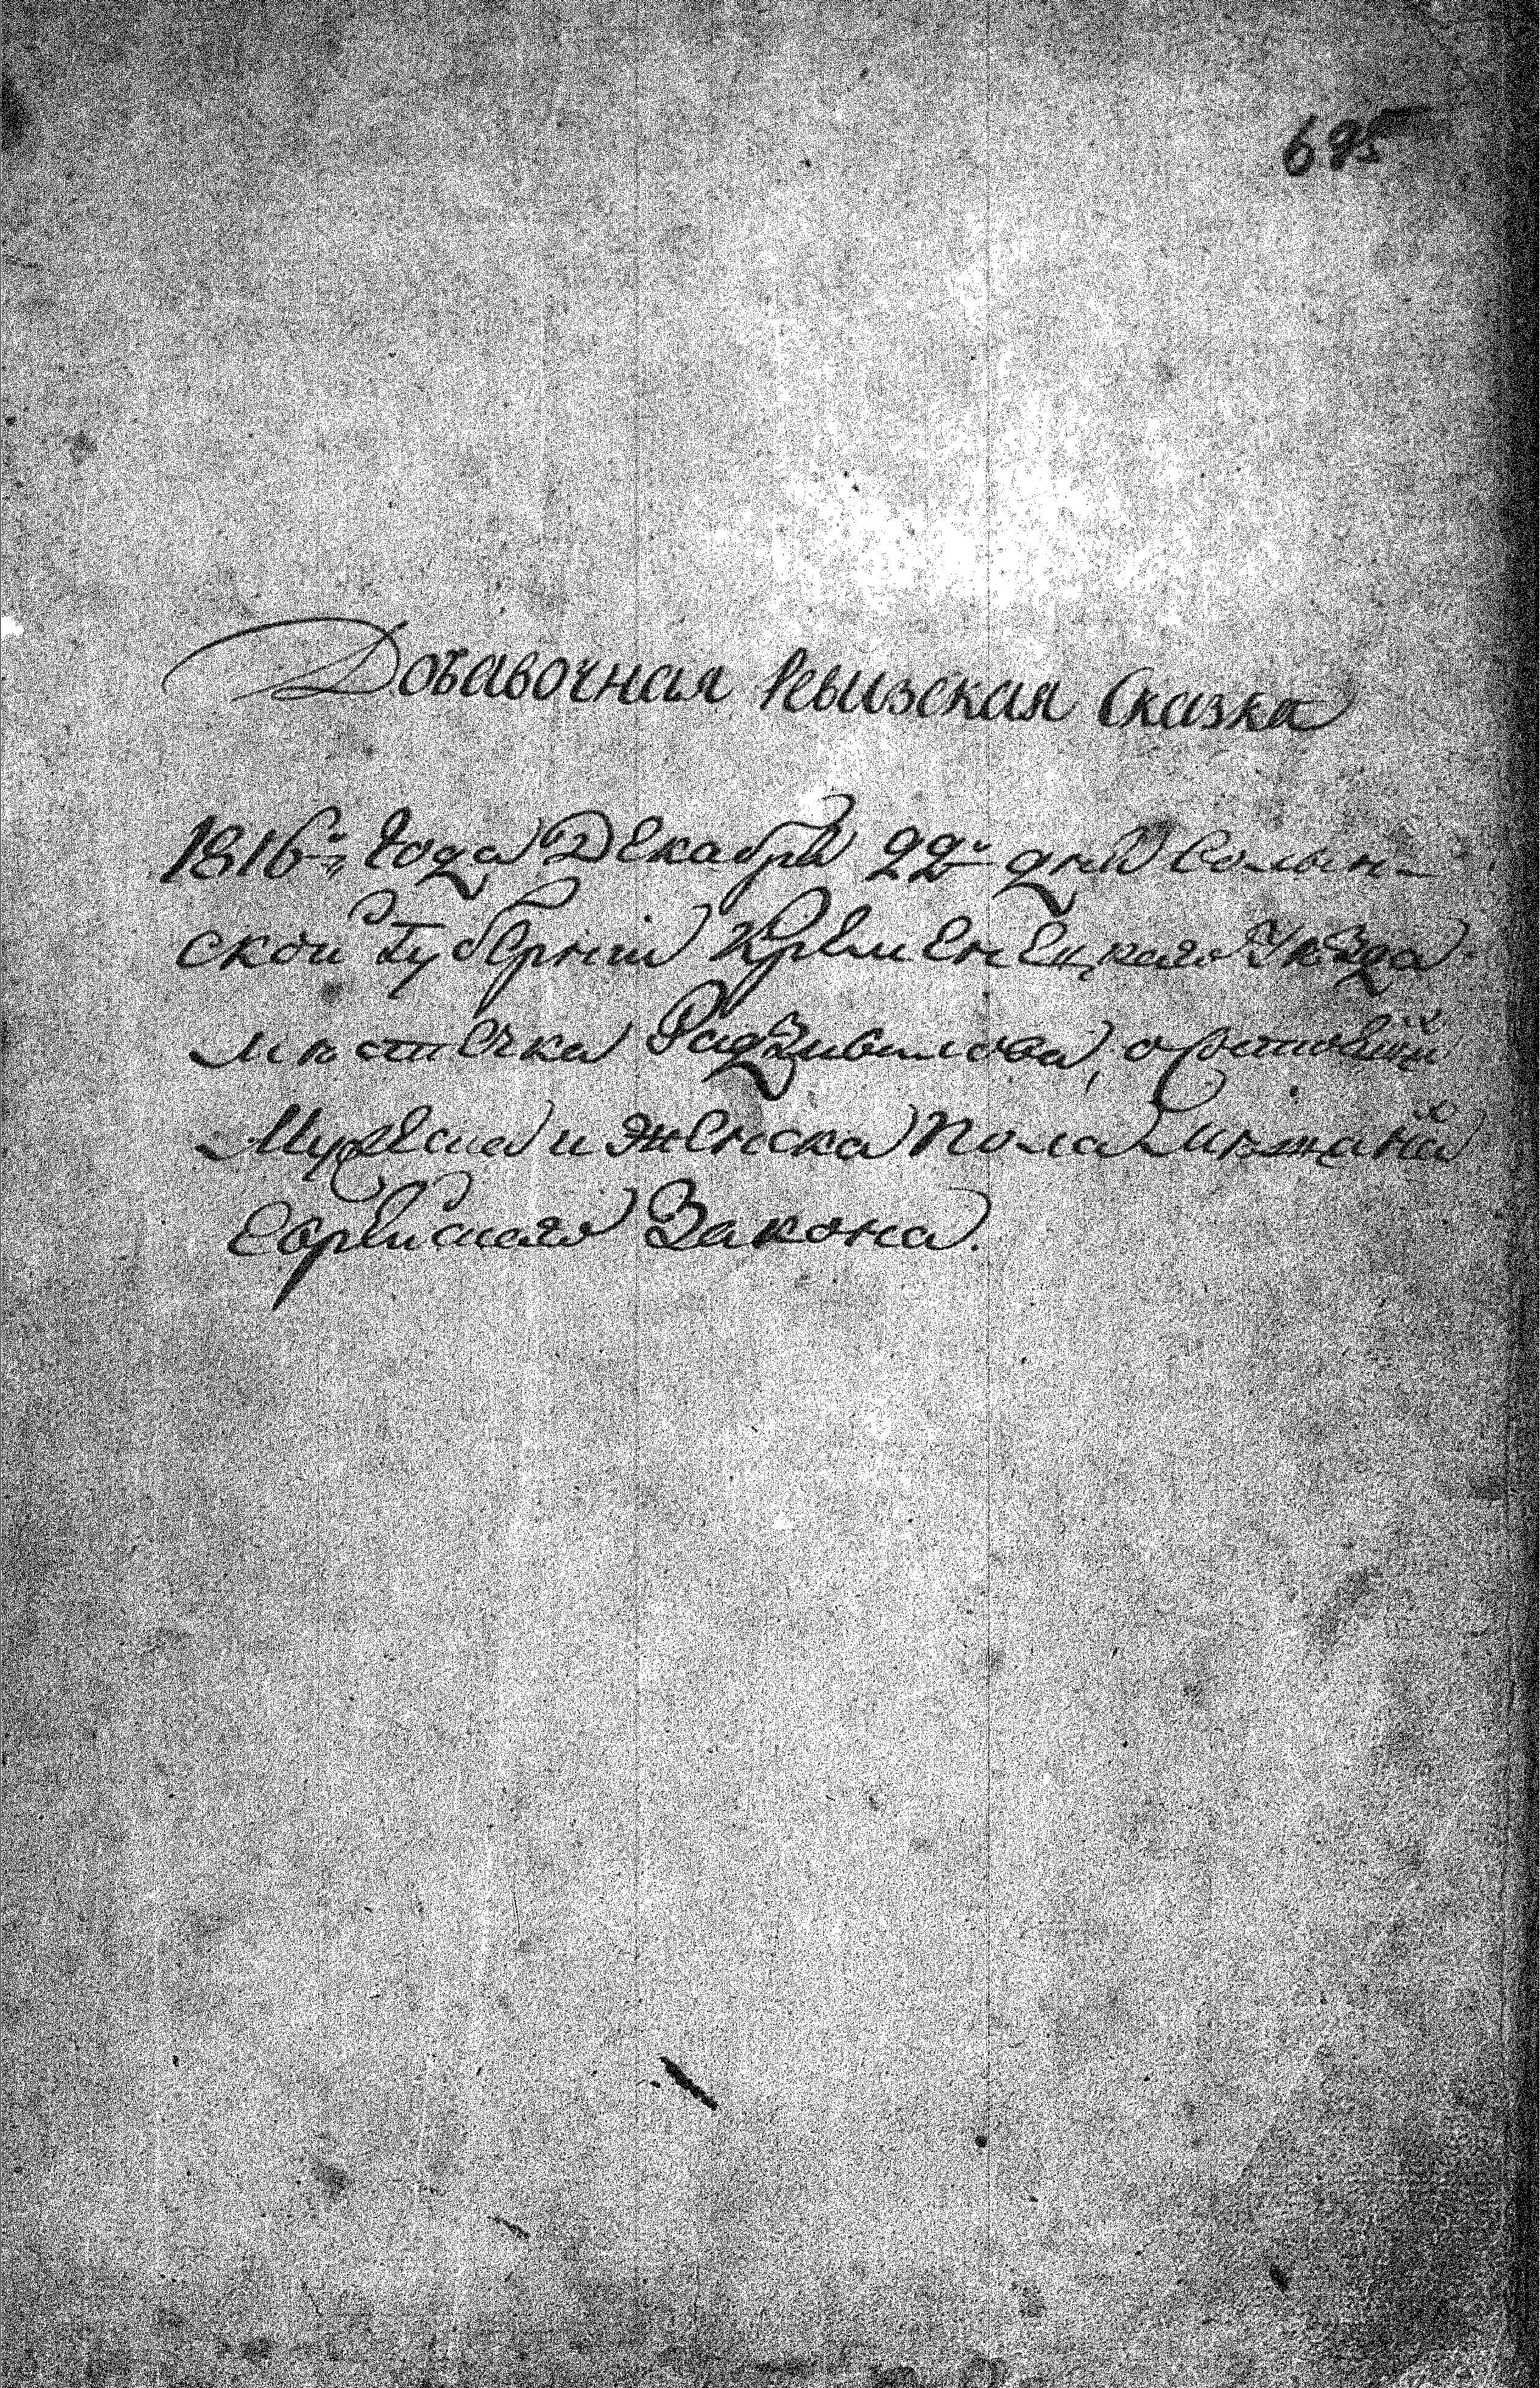 695
Добавочная Ревизская Сказка
1816го года Декабря 22го дня Волын-
ской Губернии Кременецкаго Уѣзда
мѣстечка Радзивилова, о
Мужеска и женска пола мѣщанахъ
Еврейскаго Закона.